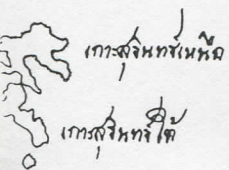 เกาะสุรินทร์เหนือ
เกาะสุรินทร์ใต้